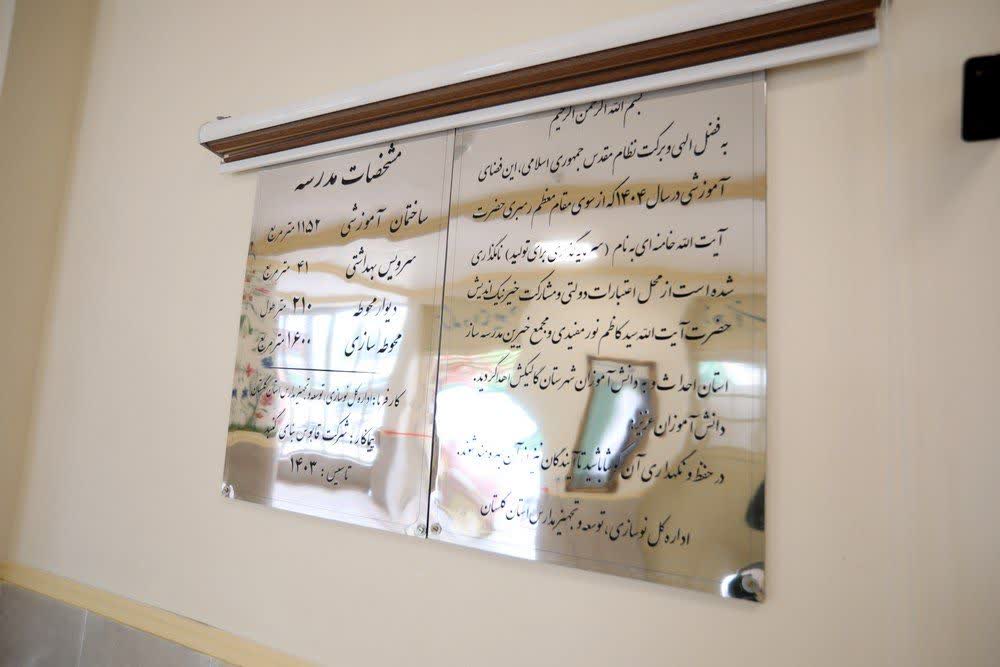 بسم الله الرحمن الرحیم
به فضل الهی و برکت نظام مقدس جمهوری اسلامی، این فضای
آموزشی در سال ۱۴۰۴ که از سوی مقام معظم رهبری حضرت
آیت الله خامنه ای به نام (سرمایه گذاری برای تولید) نامگذاری
شده است از محل اعتبارات دولتی و مشارکت خیر نیک اندیش
حضرت آیت الله سید کاظم نورمفیدی و مجمع خیرین مدرسه ساز
استان احداث و به دانش آموزان شهرستان گالیکش اهدا گردید.
دانش آموزان عزیز:
در حفظ و نگهداری آن کوشا باشید تا آیندگان نیز از آن بهره مند شوند.
اداره کل نوسازی، توسعه و تجهیز مدارس استان گلستان
مشخصات مدرسه
ساختمان آموزشی ۱۱۵۲ متر مربع
سرویس بهداشتی ۴۱ متر مربع
دیوار محوطه ۲۱۰ متر طول
محوطه سازی ۱۶۰۰ متر مربع
کارفرما: اداره کل نوسازی، توسعه و تجهیز مدارس استان گلستان
پیمانکار: شرکت قابوس بنای گنبد
تاسیس: ۱۴۰۳